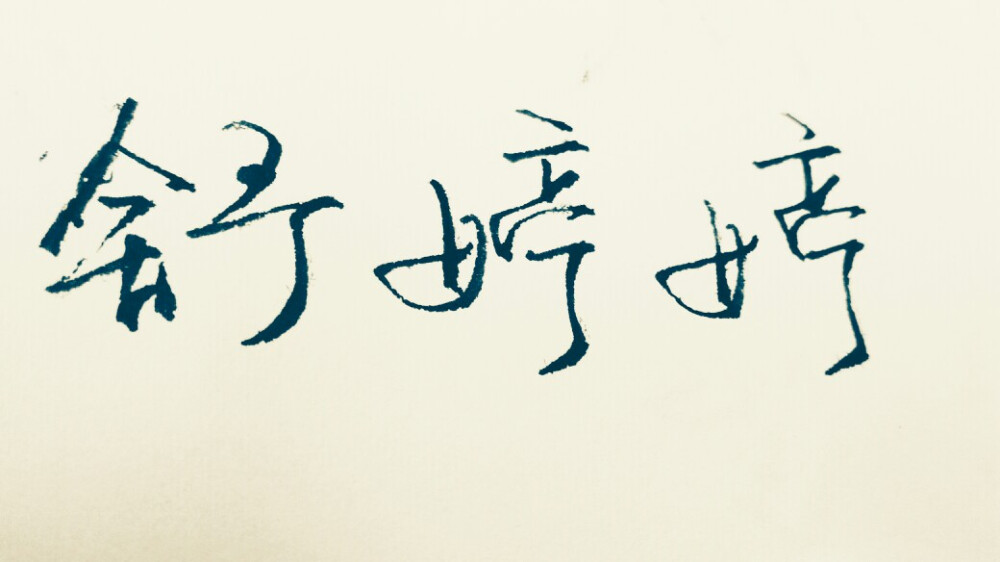 舒婷婷